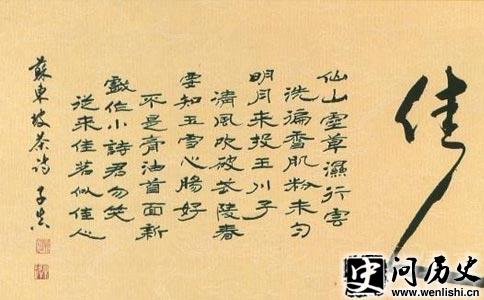 佳
仙山靈草濕行雲
洗遍香肌粉未勻
明月來投玉川子
清風吹破武陵春
要知玉雪心腸好
不是膏油首面新
戲作小詩君勿笑
從來佳茗似佳人
蘇東坡茶詩 子
史 问历史
www.wenlishi.cn